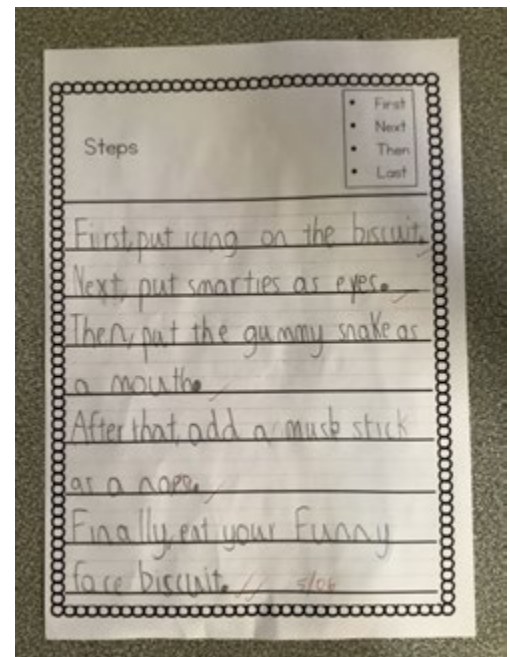 Steps
• First
• Next
• Then
• Last
First, put icing on the biscuit.
Next, put smarties as eyes.
Then, put the gummy snake as
a mouth.
After that, add a musk stick
as a nose.
Finally, eat your Funny
face biscuit.